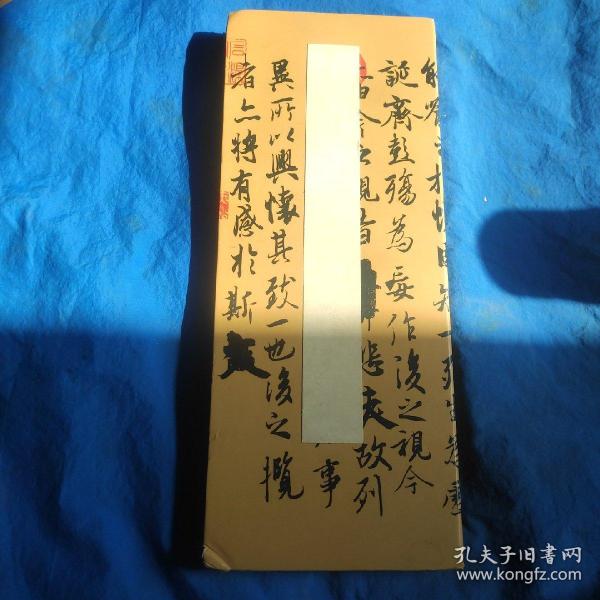 能喻之於懷固知一死生為虛
誕齊彭殤為妄作後之視今
今之視昔
悲夫故列
事
異所以興懷其致一也後之攬
者亦将有感於斯
孔夫子旧书网
www.kongfz.com